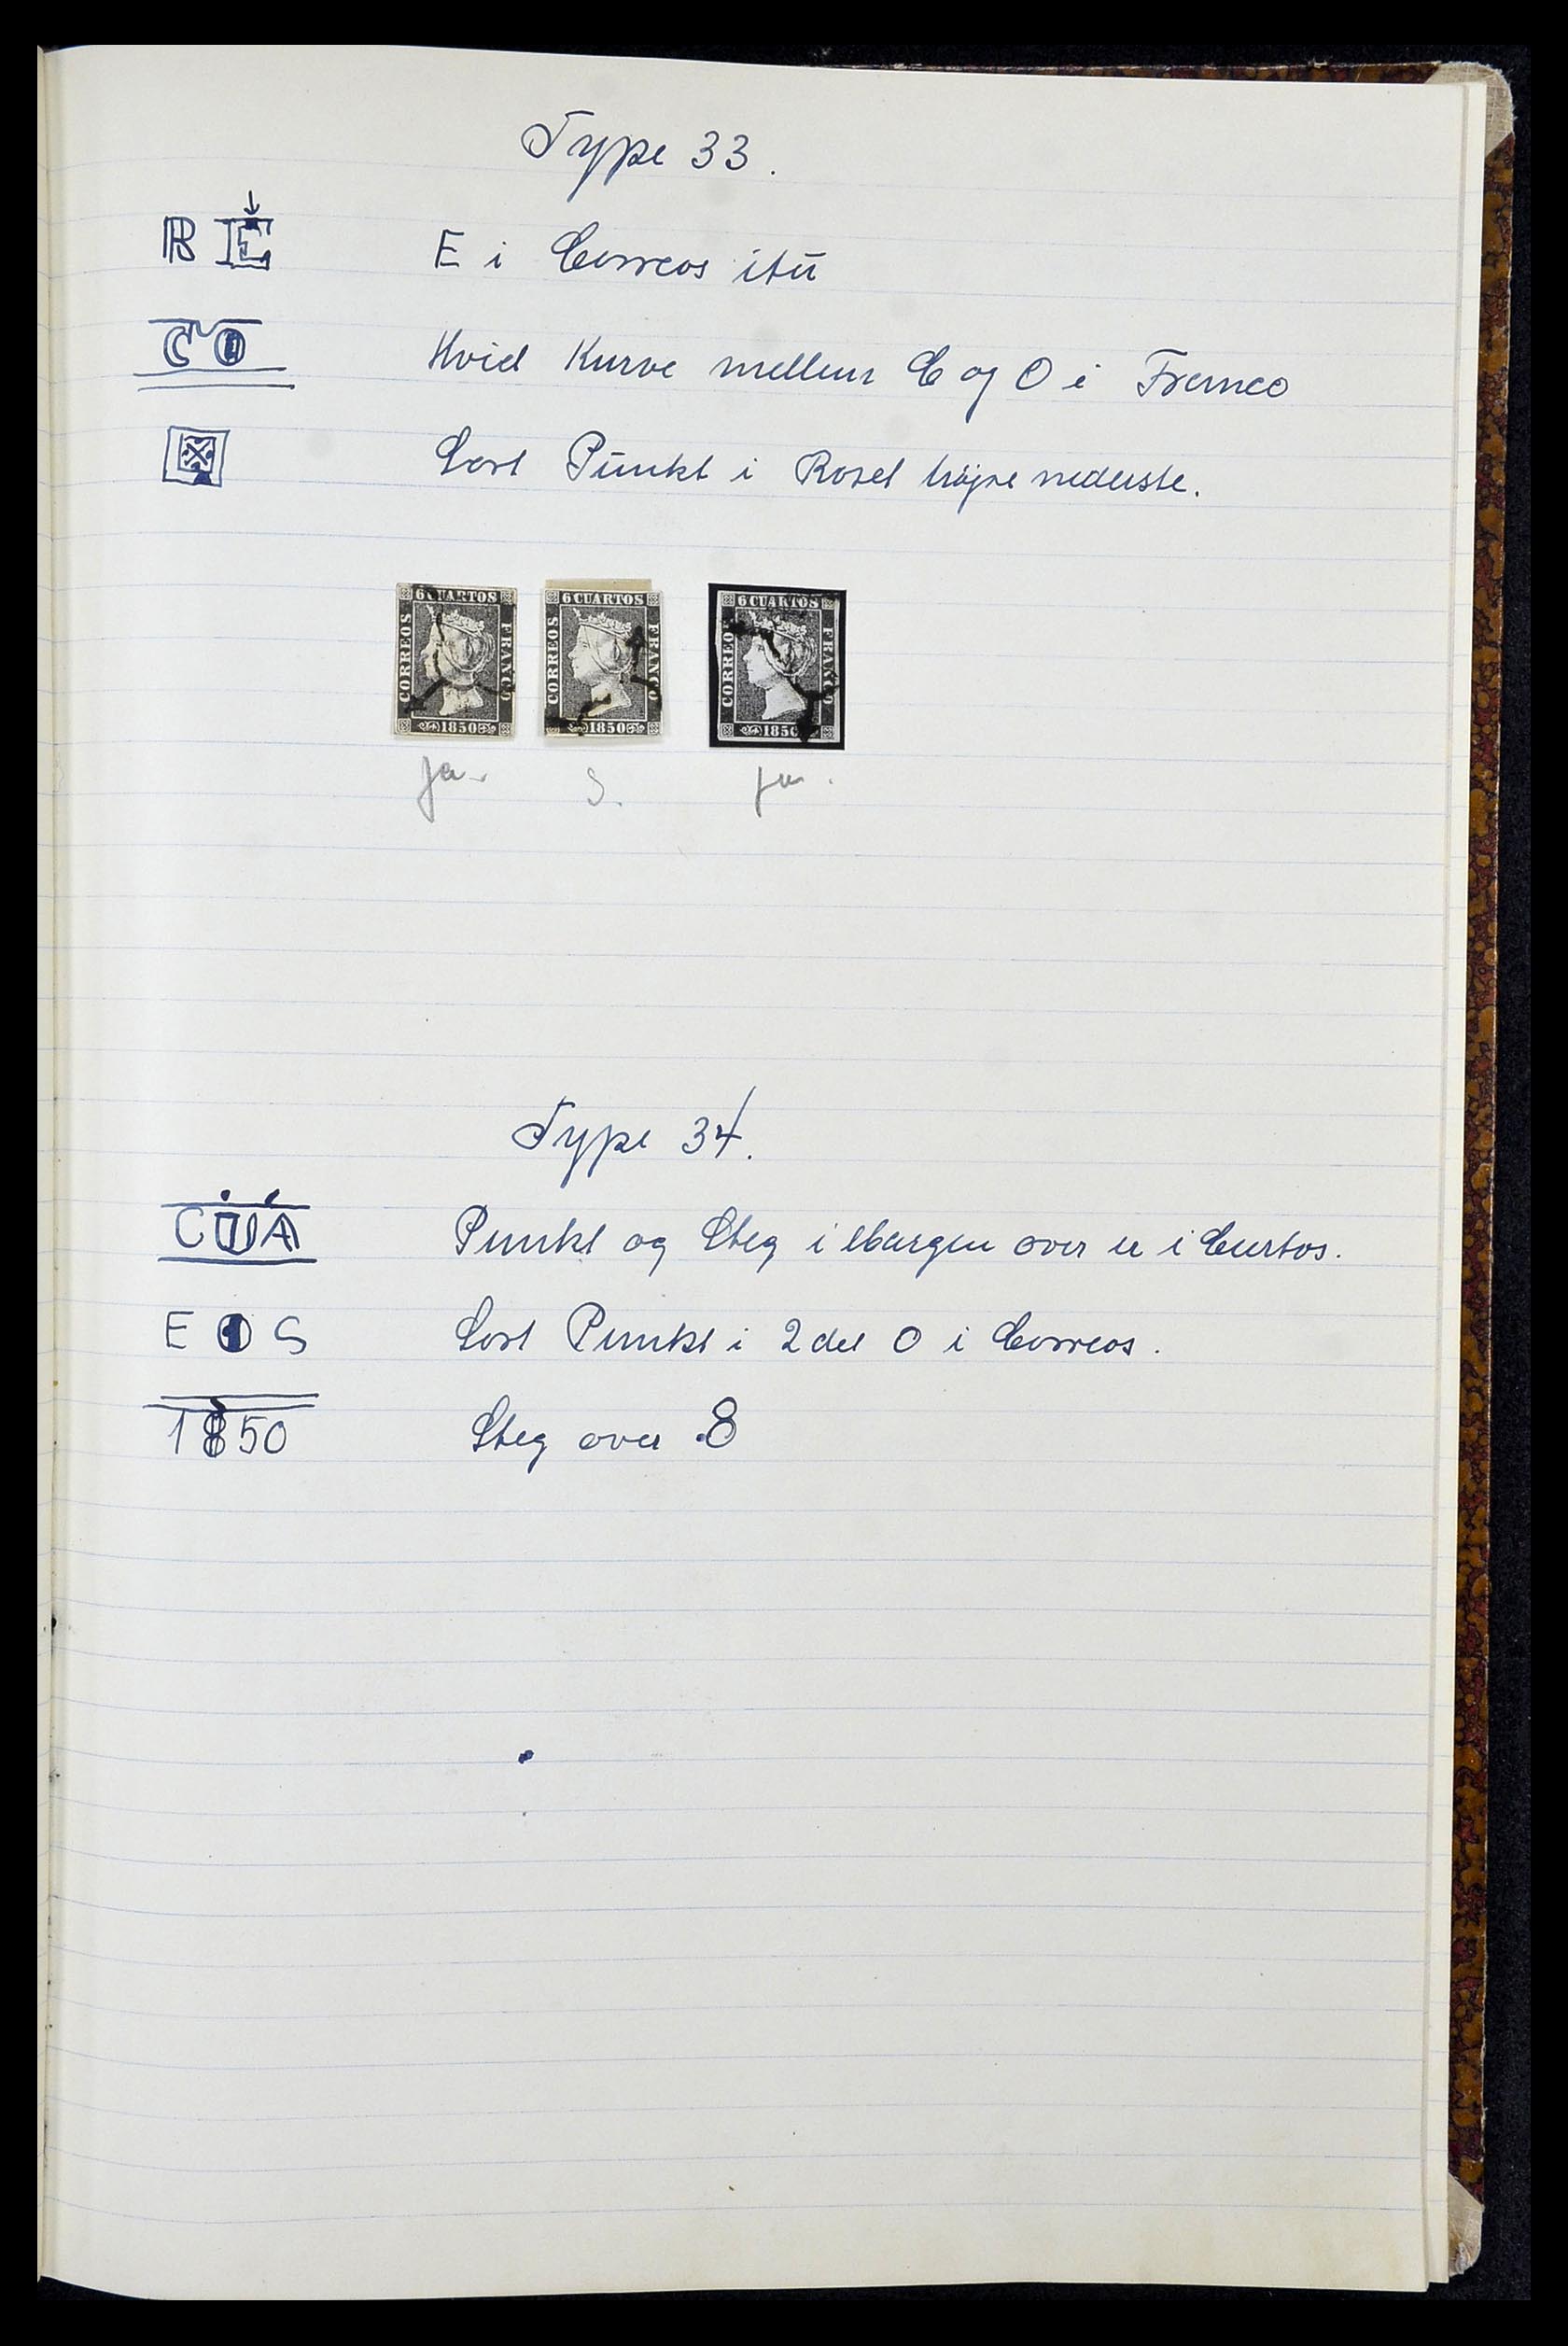 Type 33.
R E E i Correos itū
C O Hvid Kurve mellem C og O i Franco
Sort Pūnkt i Roset højre nederste.
6 CUARTOS
CORREOS
FRANCO
1850
6 CUARTOS
CORREOS
FRANCO
1850
6 CUARTOS
CORREOS
FRANCO
1850
Ja. S. Ja.
Type 34.
CUA Punkt og Steg i Margen over u i Curtos.
E O S Sort Punkt i 2det O i Correos.
1850 Steg over 8